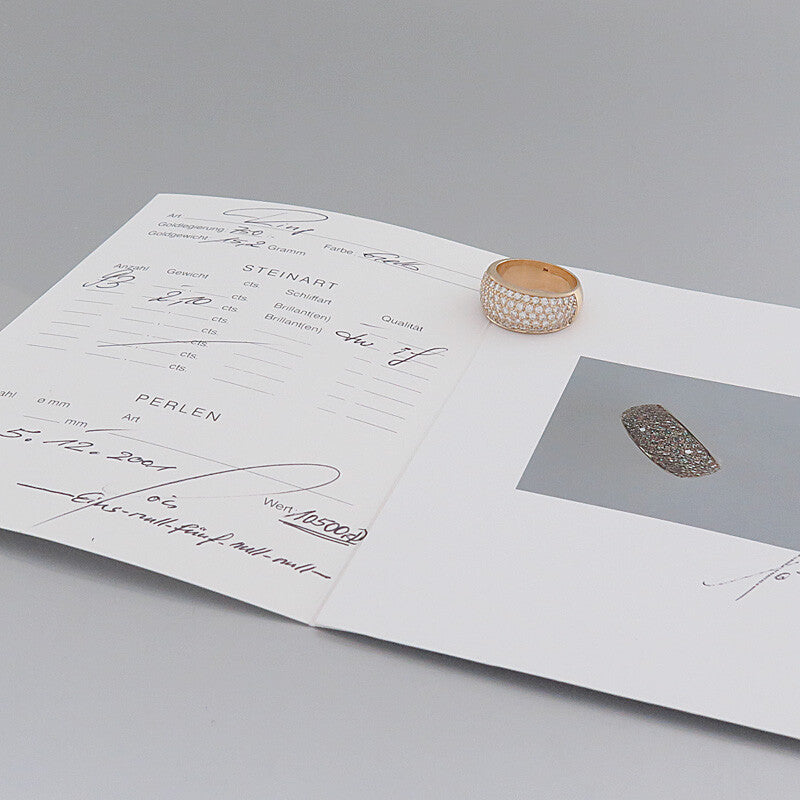 Art Ring
Goldlegierung 750. Farbe Gelb
Goldgewicht 15,2 Gramm
STEINART
Anzahl Gewicht Schliffart Qualität
93 2,10 cts. Brillant(en) if
cts. Brillant(en)
cts.
cts.
cts.
PERLEN
ahl ø mm Art
mm
5.12.2001
Wert: 10500.-
-Eins-null-fünf-null-null-